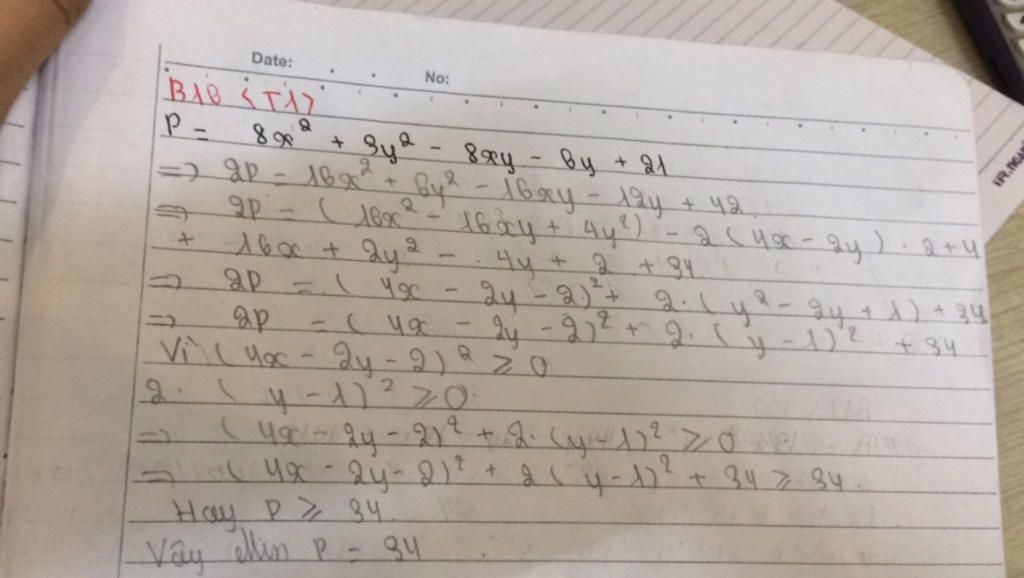 Date:
No:
B16 <T1>
P = 8x² + 3y² - 8xy - 6y + 21
=> 2P = 16x² + 6y² - 16xy - 12y + 42
=> 2P = (16x² - 16xy + 4y²) - 2(4x - 2y).2 + 4
+ 16x + 2y² - 4y + 2 + 34
=> 2P = (4x - 2y - 2)² + 2.(y² - 2y + 1) + 34
=> 2P = (4x - 2y - 2)² + 2.(y - 1)² + 34
Vì (4x - 2y - 2)² ≥ 0
2.(y - 1)² ≥ 0
=> (4x - 2y - 2)² + 2.(y - 1)² ≥ 0
=> (4x - 2y - 2)² + 2(y - 1)² + 34 ≥ 34.
Hay P ≥ 34
Vậy Min P = 34